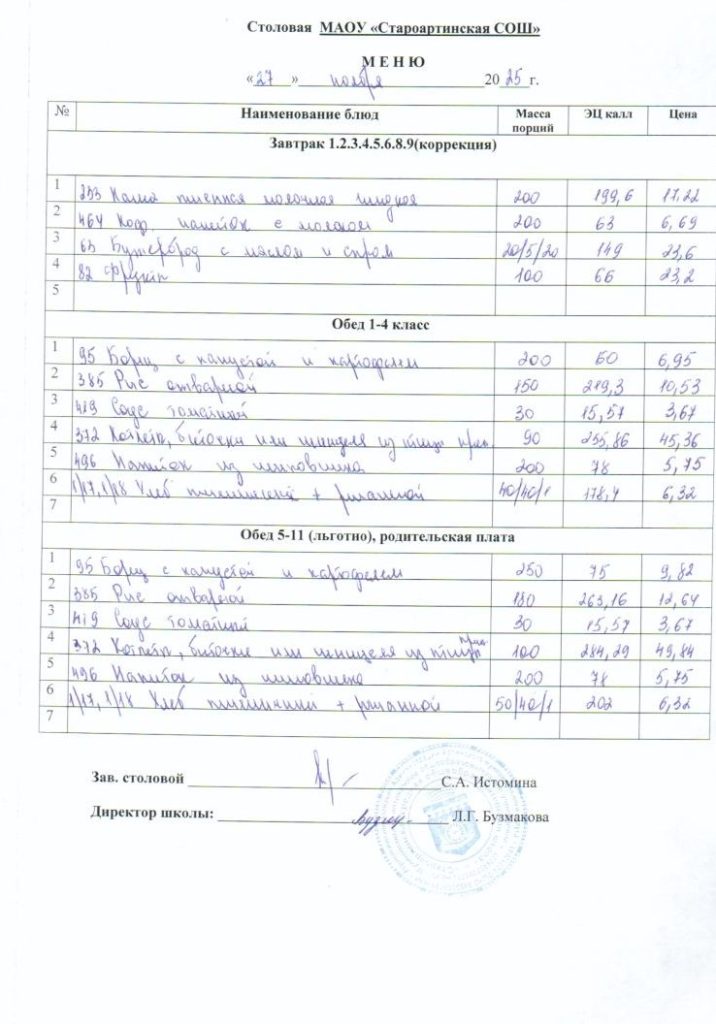 Столовая МАОУ «Староартинская СОШ»
М Е Н Ю
«27» ноября 2025 г.
№ Наименование блюд Масса порций ЭЦ калл Цена
Завтрак 1.2.3.4.5.6.8.9(коррекция)
1 253 Каша пшенная молочная жидкая 200 199,6 17,22
2 464 Коф. напиток с молоком 200 63 6,69
3 63 Бутерброд с маслом и сыром 20/5/20 149 23,6
4 82 Фрукт 100 66 23,2
5
Обед 1-4 класс
1 95 Борщ с капустой и картофелем 200 60 6,95
2 385 Рис отварной 150 219,3 10,53
3 419 Соус томатный 30 15,57 3,67
4 372 Котлеты, биточки или шницеля из птицы 90 255,86 45,36
5 496 Напиток из шиповника 200 78 5,75
6 1/17, 1/18 Хлеб пшеничный + ржаной 40/40/1 178,4 6,32
7
Обед 5-11 (льготно), родительская плата
1 95 Борщ с капустой и картофелем 250 75 9,82
2 385 Рис отварной 180 263,16 12,64
3 419 Соус томатный 30 15,57 3,67
4 372 Котлеты, биточки или шницеля из птицы 100 284,29 49,84
5 496 Напиток из шиповника 200 78 5,75
6 1/17, 1/18 Хлеб пшеничный + ржаной 50/40/1 202 6,32
7
Зав. столовой С.А. Истомина
Директор школы: Л.Г. Бузмакова